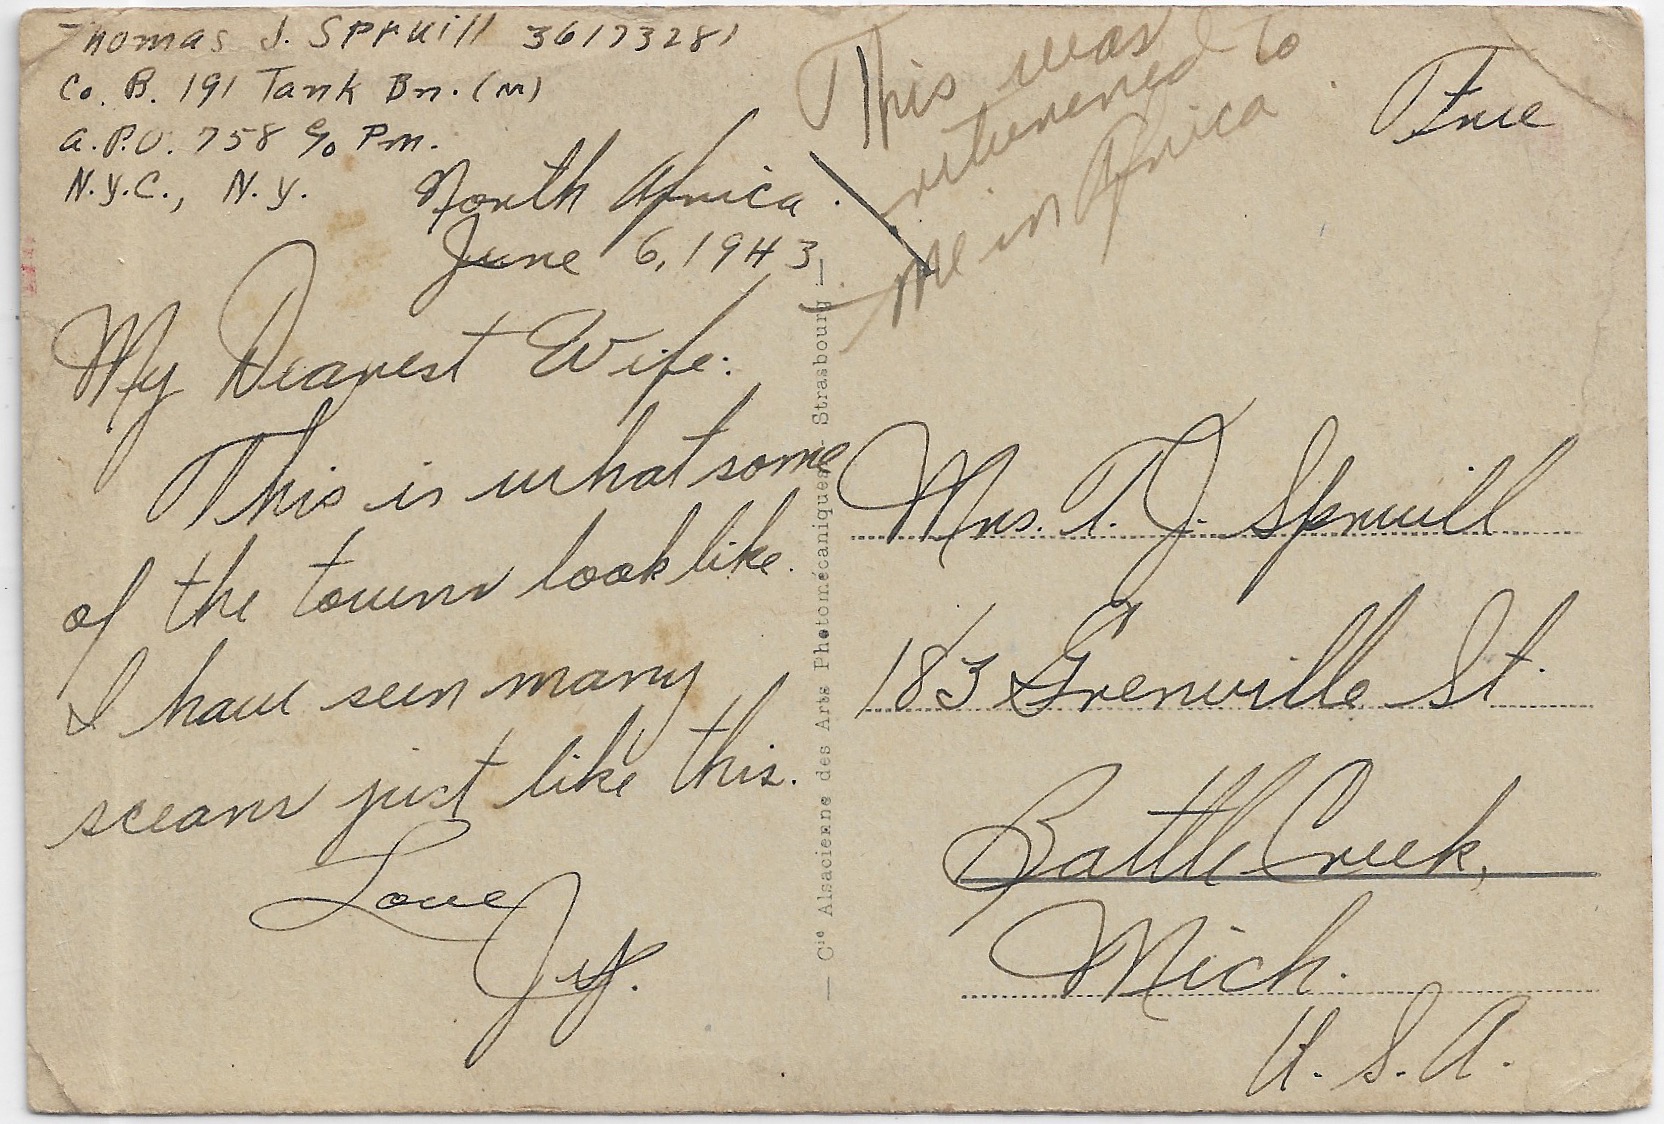 Thomas J. Spruill 36173281
Co. B. 191 Tank Bn. (M)
A.P.O. 758 c/o Pm.
N.Y.C., N.Y.
North Africa.
June 6, 1943
My Dearest Wife:
This is what some
of the towns look like.
I have seen many
sceans just like this.
Love
This was
returened to
me in Africa
Free
Mrs. T. J. Spruill
183 Grenville St.
Battle Creek,
Mich.
U.S.A.
— Cie Alsacienne des Arts Photomécaniques, Strasbourg —